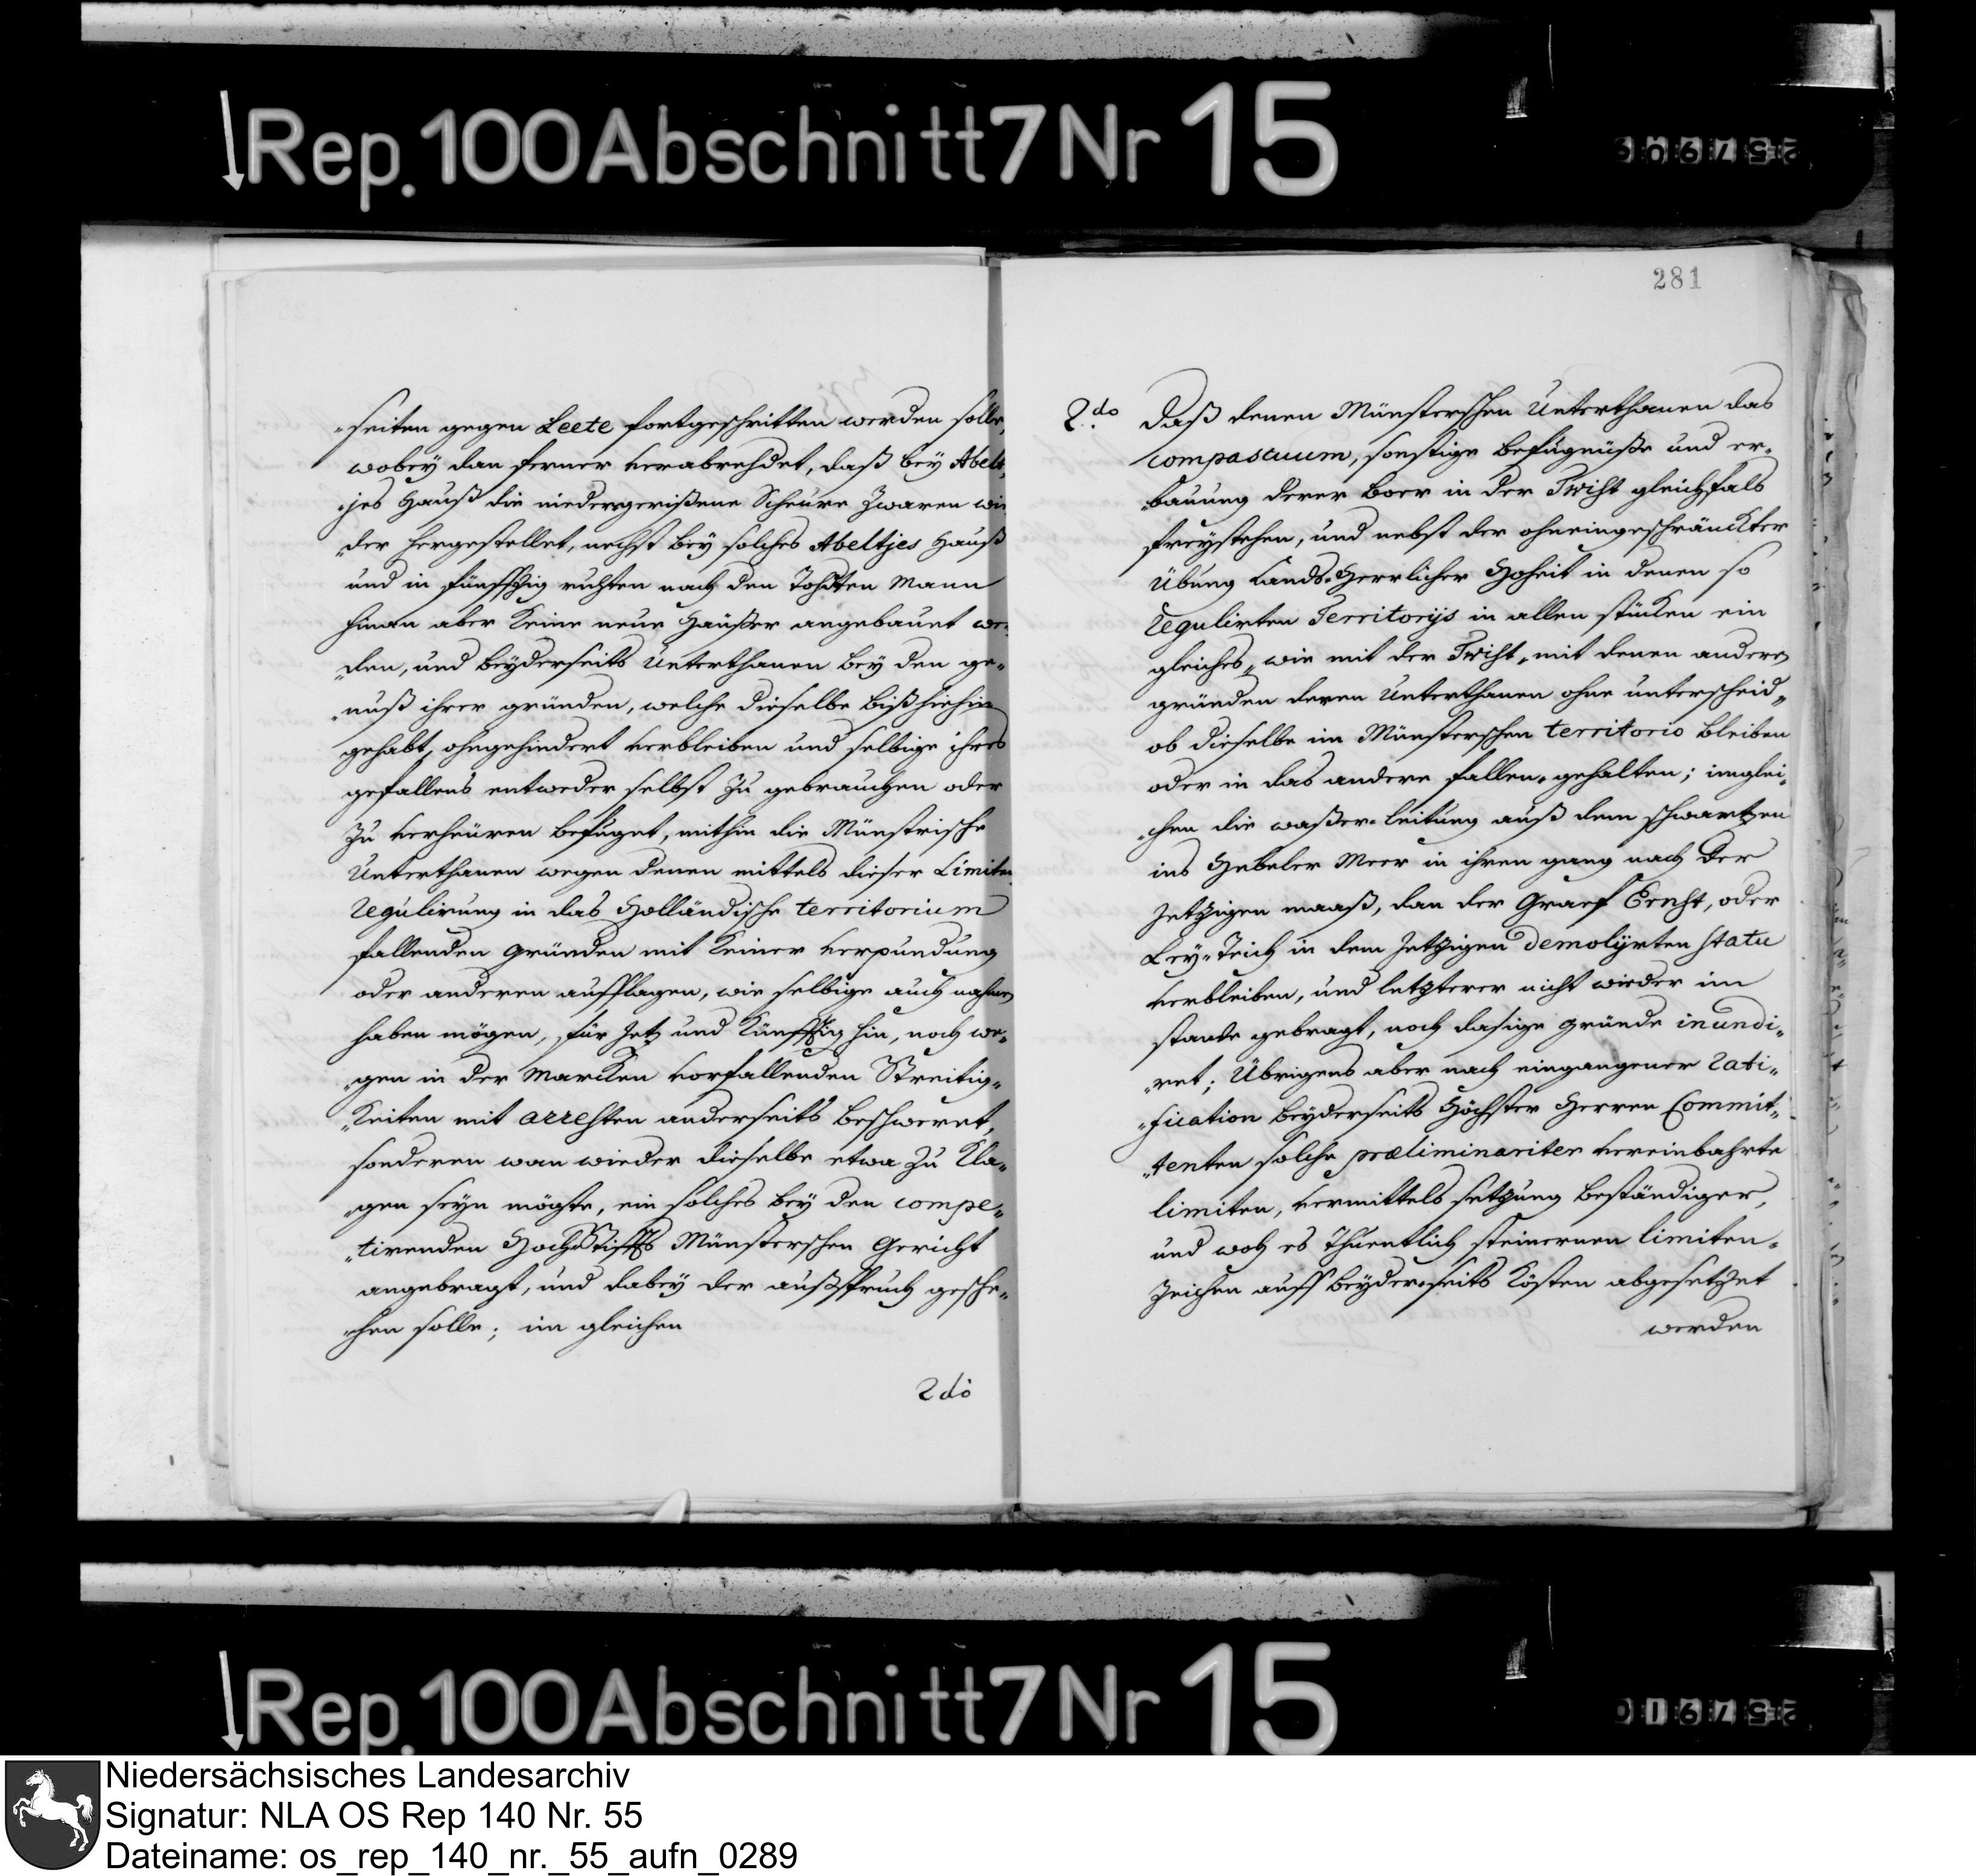 Rep. 100 Abschnitt 7 Nr 15
281
"seiten gegen Leete fortgeschritten werden solle,
wobey dan ferner verabrehdet, daß bey Abelt
"jes Hauß die niedergerißene Scheure zwaren wie
"der hergestellet, nechst bey solches Abeltjes Hauß
und in fünffzig ruhten nach den Tohdten Mann
hinan aber keine neue Häußer angebauet wer
"den, und beyderseits Unterthanen bey den ge„
"nuß ihrer gründen, welche dieselbe bißhiehin
gehabt, ohngehindert verbleiben und selbige ihres
gefallens entweder selbst zu gebrauchen oder
zu verheuren befuget, mithin die Münstrische
Unterthanen wegen denen mittels dieser Limiten
Regulirung in das Holländische territorium
fallenden gründen mit keiner verpundung
oder anderen aufflagen, wie selbige auch nahmen
haben mögen, für jetz und künfftig hin, noch we„
"gen in der Marcken vorfallenden Streitig„
"keiten mit arresten anderseits beschweret,
sonderen wan wieder dieselbe etwa zu kla„
"gen seyn mögte, ein solches bey den compe„
"tirenden Hochstiffts Münsterschen Gericht
angebragt, und dabey der außspruch gesche„
"hen solle; im gleichen
2do
2do Daß denen Münsterschen Unterthanen das
compascuum, sonstige befugnüße und er„
"bauung derer boer in der Twist gleichfals
freystehen, und nebst der ohneingeschränckter
Übung Lands-Herrlicher Hoheit in denen so
regulirten Territorijs in allen stücken ein
gleiches, wie mit der Twist, mit denen andere
gründen deren Unterthanen ohne unterscheid„
ob dieselbe im Münsterschen territorio bleiben
oder in das andere fallen, gehalten; imglei„
"chen die waßer-leitung auß dem schwartzen
ins Hebeler Meer in ihren gang nach der
jetzigen maaß, dan der Graef Ernst, oder
Ley-Teich in dem jetzigen demolyrten statu
verbleiben, und letzterer nicht wieder im
stande gebragt, noch dasige gründe inundi„
"ret; Übrigens aber nach eingangener rati„
"fication beyderseits Höchster Herren Commit„
"tenten solche præliminariter vereinbahrte
limiten, vermittels setzung beständiger,
und woh es thuentlich steinernen limiten-
zeichen auff beyderseits kösten abgesetzet
werden
Rep. 100 Abschnitt 7 Nr 15
Niedersächsisches Landesarchiv
Signatur: NLA OS Rep 140 Nr. 55
Dateiname: os_rep_140_nr._55_aufn_0289